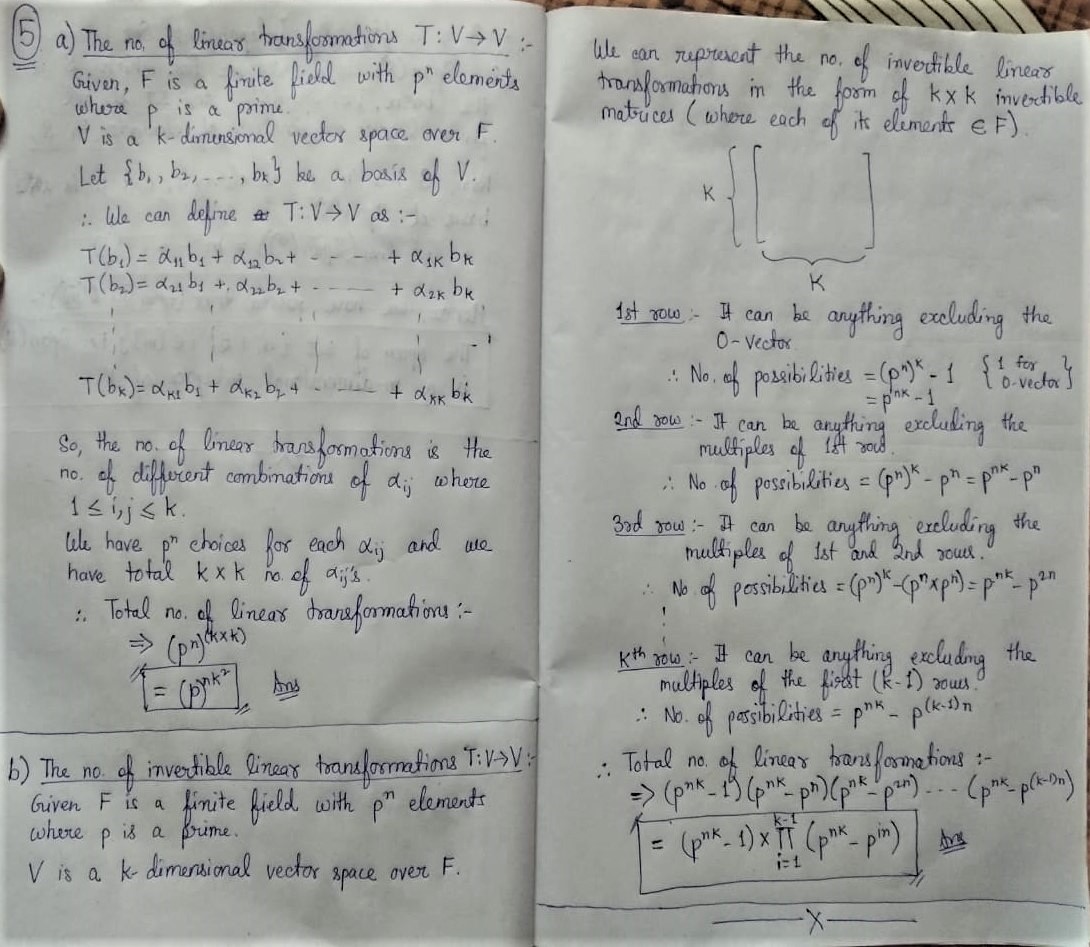 ⑤ a) The no. of linear transformations T: V→V :-
Given, F is a finite field with pⁿ elements
where p is a prime.
V is a k-dimensional vector space over F.
Let {b₁, b₂, ...., bₖ} be a basis of V.
∴ We can define T: V→V as :-
T(b₁) = α₁₁b₁ + α₁₂b₂ + - - - - + α₁ₖ bₖ
T(b₂) = α₂₁b₁ + α₂₂b₂ + - - - - + α₂ₖ bₖ
T(bₖ) = αₖ₁b₁ + αₖ₂b₂ + - - - - + αₖₖ bₖ
So, the no. of linear transformations is the
no. of different combinations of αᵢⱼ where
1 ≤ i,j ≤ k.
We have pⁿ choices for each αᵢⱼ and we
have total k x k no. of αᵢⱼ's.
∴ Total no. of linear transformations :-
⇒ (pⁿ)^(k x k)
= (p)^nk² Ans
b) The no. of invertible linear transformations T: V→V :-
Given F is a finite field with pⁿ elements
where p is a prime.
V is a k-dimensional vector space over F.
We can represent the no. of invertible linear
transformations in the form of k x k invertible
matrices (where each of its elements ∈ F).
K
K
1st row :- It can be anything excluding the
0-vector.
∴ No. of possibilities = (pⁿ)ᵏ - 1 {1 for 0-vector}
= pⁿᵏ - 1
2nd row :- It can be anything excluding the
multiples of 1st row.
∴ No. of possibilities = (pⁿ)ᵏ - pⁿ = pⁿᵏ - pⁿ
3rd row :- It can be anything excluding the
multiples of 1st and 2nd rows.
∴ No of possibilities = (pⁿ)ᵏ - (pⁿ x pⁿ) = pⁿᵏ - p²ⁿ
Kth row :- It can be anything excluding the
multiples of the first (k-1) rows.
∴ No. of possibilities = pⁿᵏ - p^(k-1)n
∴ Total no. of linear transformations :-
⇒ (pⁿᵏ - 1) (pⁿᵏ - pⁿ) (pⁿᵏ - p²ⁿ) .... (pⁿᵏ - p^(k-1)n)
= (pⁿᵏ - 1) x ∏_{i=1}^{k-1} (pⁿᵏ - pⁱⁿ) Ans
X